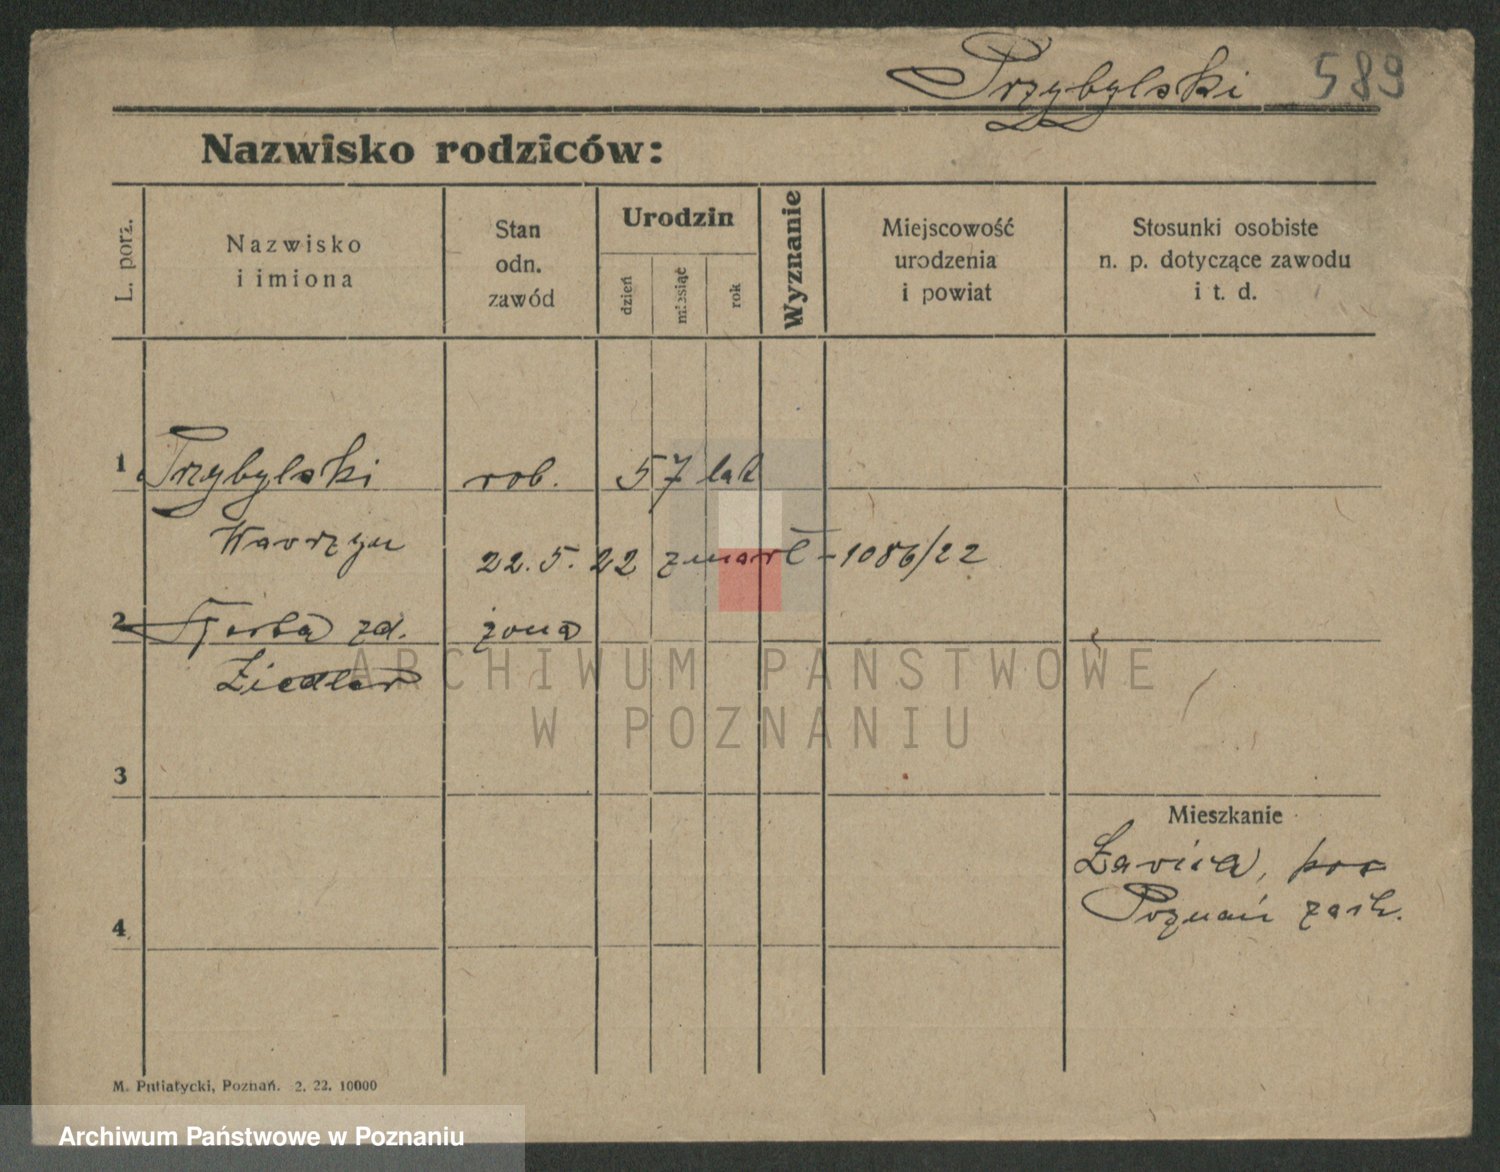 Przybylski 589
Nazwisko rodziców:
L. porz.
Nazwisko
i imiona
Stan
odn.
zawód
Urodzin
dzień
miesiąc
rok
Wyznanie
Miejscowość
urodzenia
i powiat
Stosunki osobiste
n. p. dotyczące zawodu
i t. d.
1 Przybylski rob. 57 lat
Wawrzyn
22.5.22 zmarł - 1086/22
2 zd. żona
Ziedler
ARCHIWUM PAŃSTWOWE
W POZNANIU
3
Mieszkanie
Ławica,
Poznań zach.
4
M. Putiatycki, Poznań. 2. 22. 10000
Archiwum Państwowe w Poznaniu